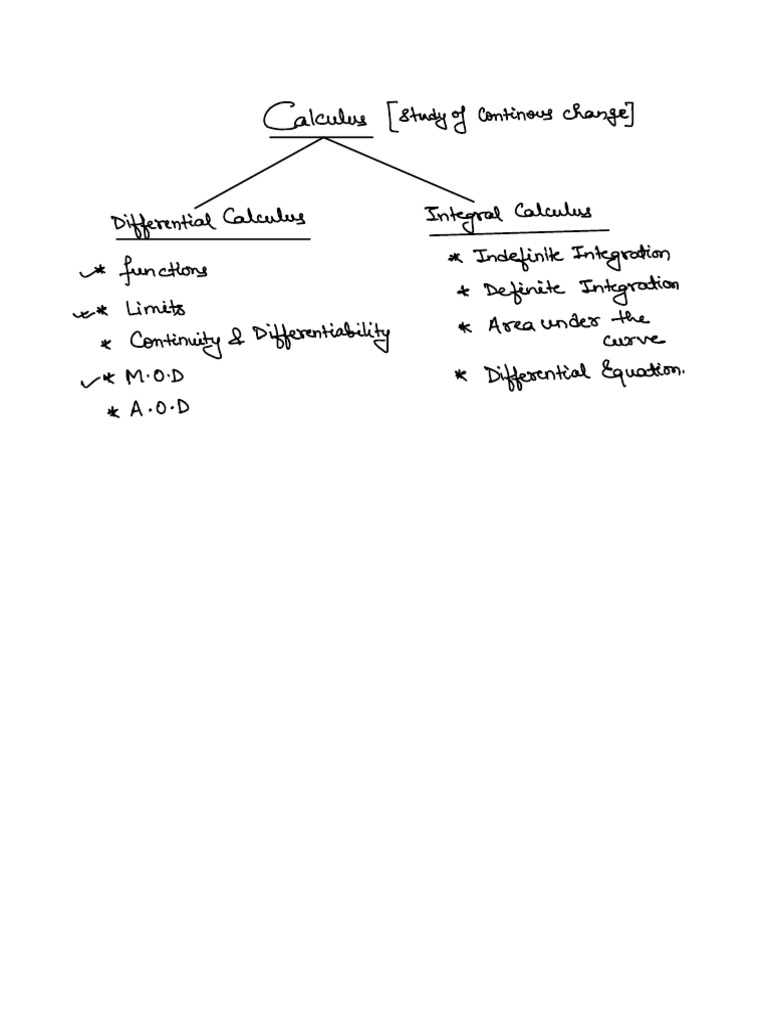 Calculus [Study of Continous change]
Differential Calculus
* functions
* Limits
* Continuity & Differentiability
* M.O.D
* A.O.D
Integral Calculus
* Indefinite Integration
* Definite Integration
* Area under the
curve
* Differential Equation.